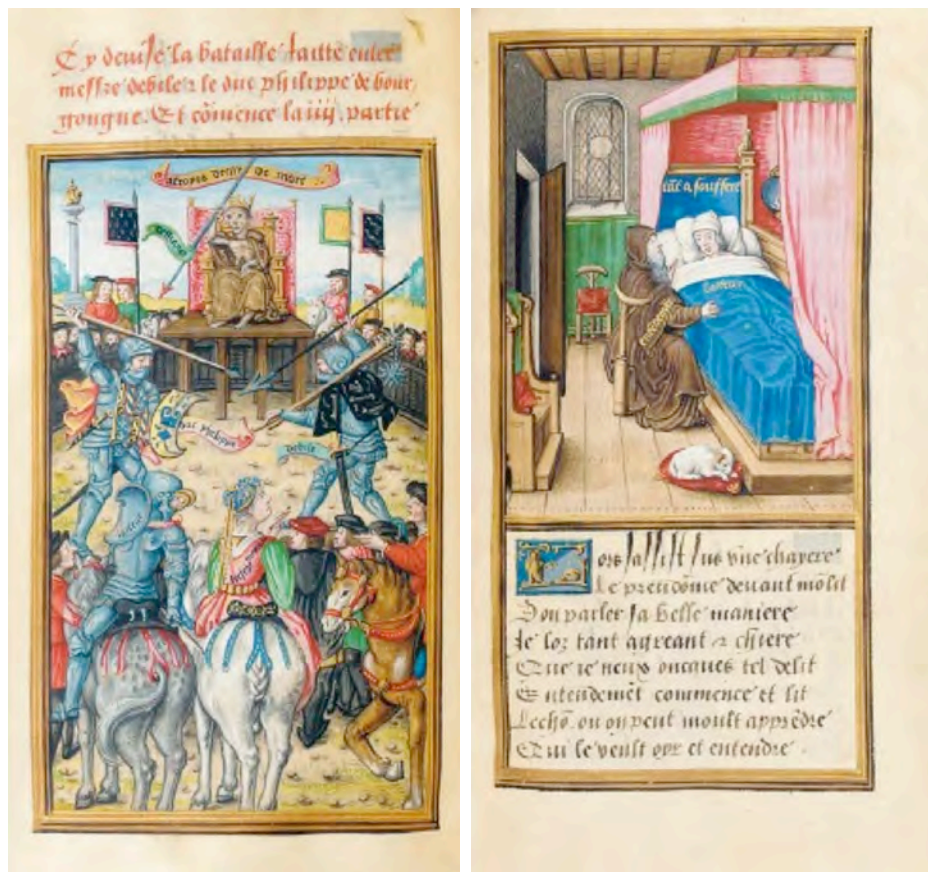 Cy devise la bataille faitte entre
messire debile ⁊ le duc philippe de bour
gongne. Et cõmence la iiij. partie
atropos de mort
duc philippe
debile
tãt a souffert
Lacteur
Lors sassist sus vne chayere
Le preudõme deuant mõ lit
Son parler sa belle maniere
Je loz tant agreant ⁊ chiere
Que ie neuz oncques tel delit
Entendemẽt commence et lit
Lechõ ou on peut moult apprẽdre
Qui le veult oyr et entendre.